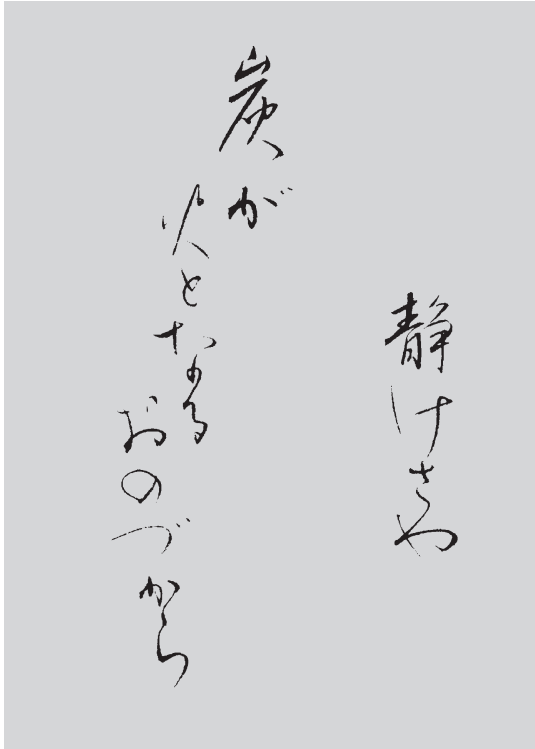 静けさや
炭が
火となる
おのづから